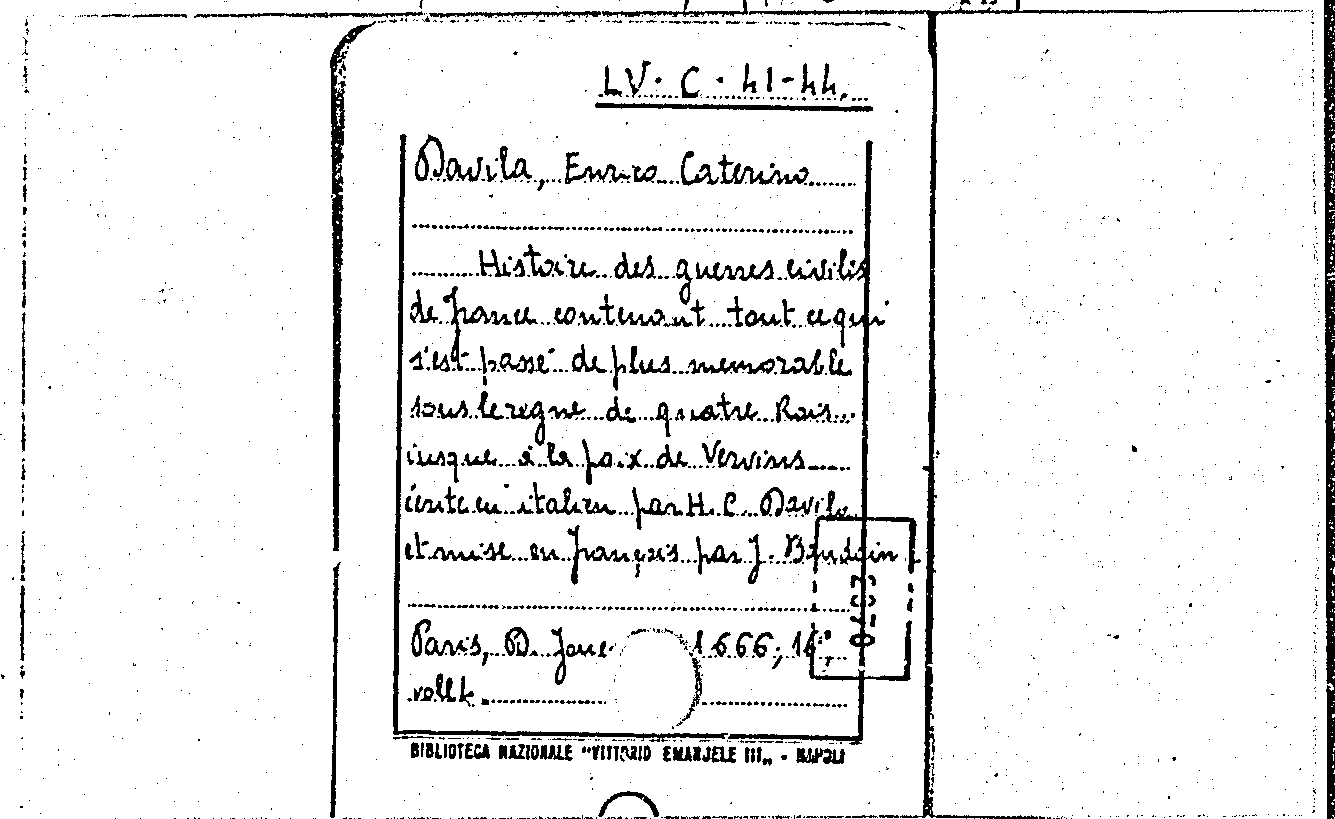 LV. C. 41-44.
Davila, Enrico Caterino
Histoire des guerres civilis
de france contenant tout ce qui
s'est passé de plus memorable
sous le regne de quatre Rois
iusque à la paix de Vervins
écrite en italien par H. C. Davila
et mise en françois par J. Baudoin
Paris, D. 1666; 16°,
voll 4.
BIBLIOTECA NAZIONALE "VITTORIO EMANUELE III„ - NAPOLI